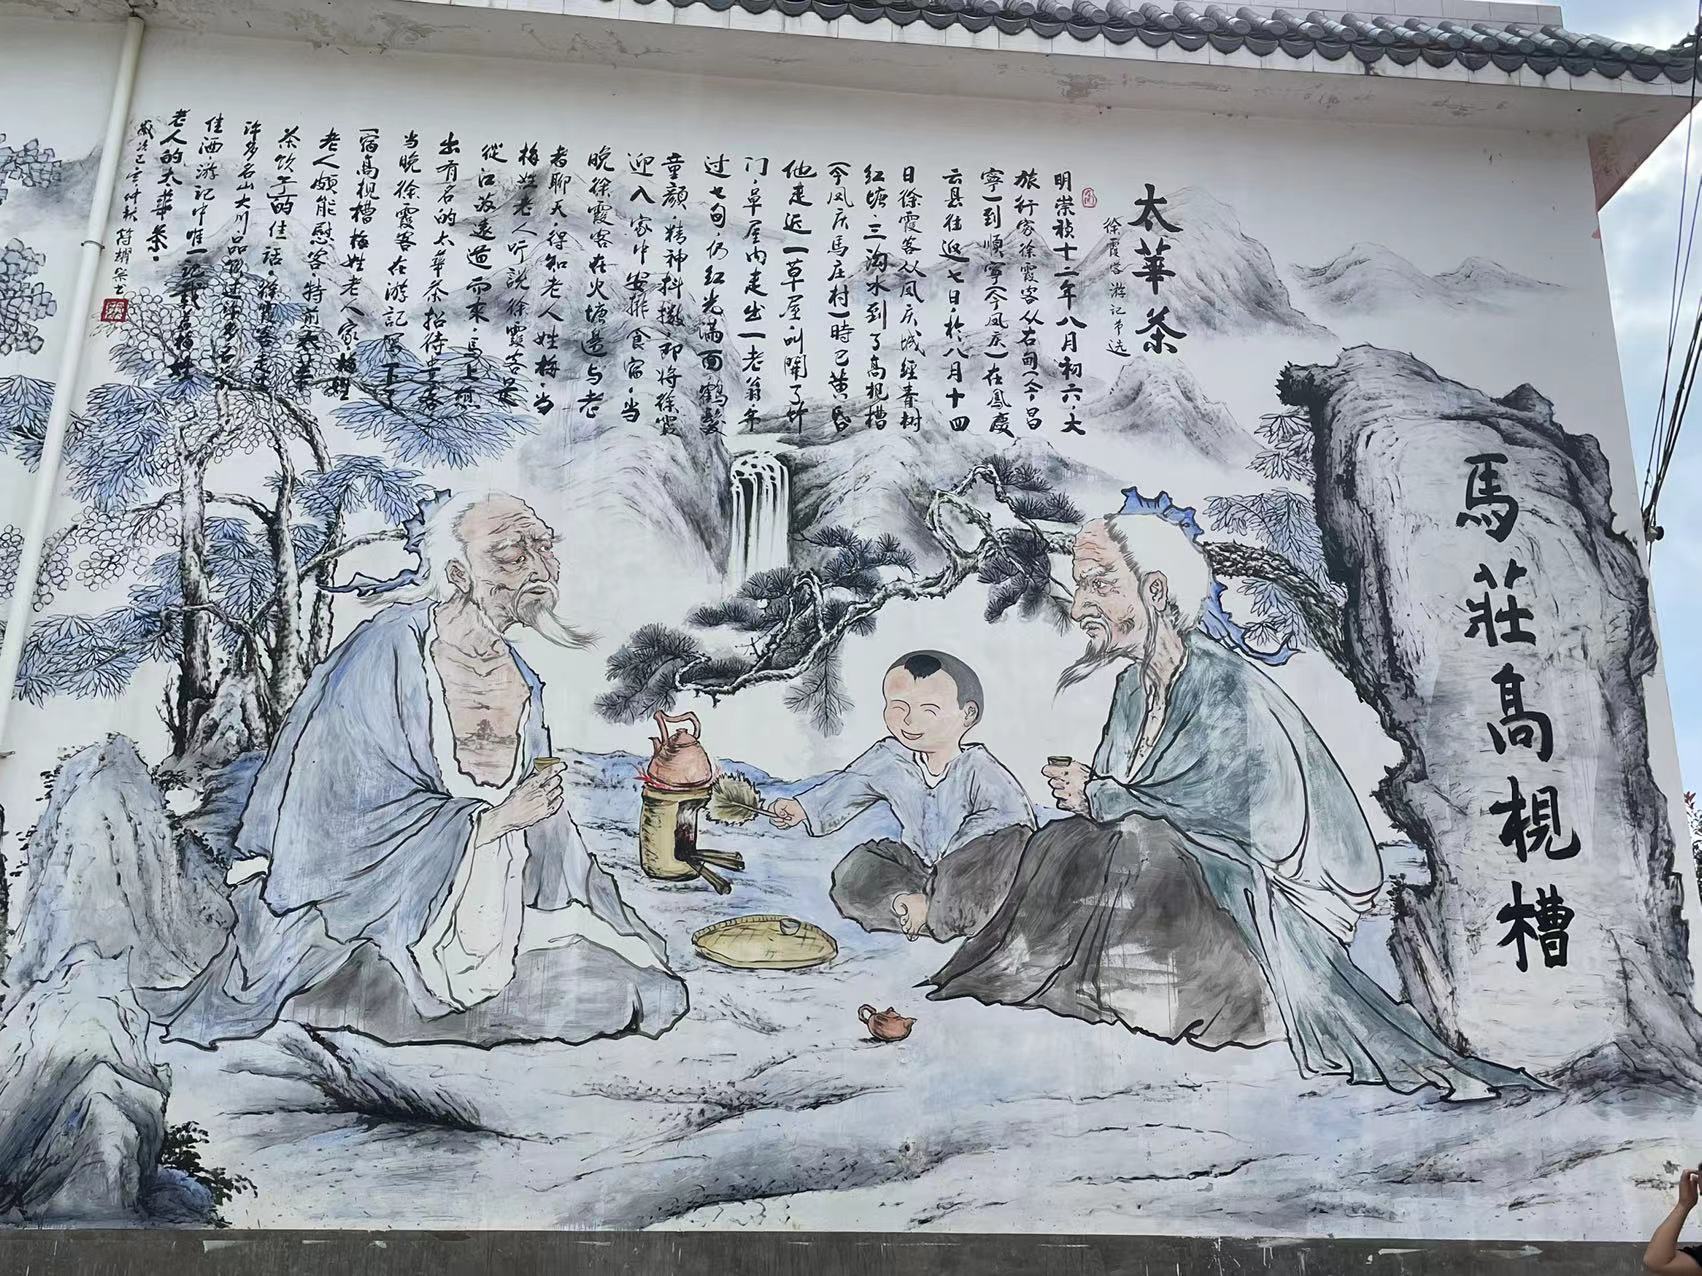 馬莊高梘槽
太華茶
徐霞客游记节选
明崇祯十二年八月初六,大
旅行家徐霞客从右甸(今昌
寧)到順寧(今凤庆)在鳳慶
云县往返七日,於八月十四
日徐霞客从凤庆城经青树
红塘、三沟水到了高梘槽
(今凤庆馬庄村)時已黄昏
他走近一草屋,叫開了竹
门,草屋内走出一老翁年
过七旬仍红光满面鹤髮
童颜,精神抖擞,即将徐霞
迎入家中安排食宿,当
晚徐霞客在火塘邊与老
者聊天得知老人姓梅,当
梅姓老人听说徐霞客是
從江遠道而来,馬上
出有名的太華茶招待
当晚徐霞客在游記寫下了
「宿高梘槽梅姓老人家梅姓
老人頗能慰客,特煎太華
茶饮之」的佳话,徐霞客走
許多名山大川,品过许多名茶
佳酒,游记中唯一記載着梅姓
老人的太華茶。
歲次己亥仲秋